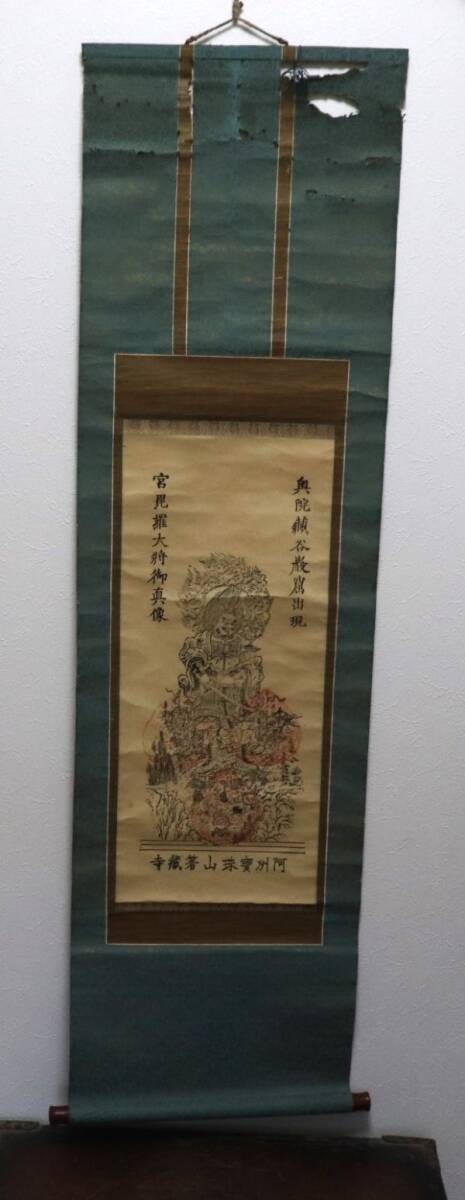 奥院蔵谷厳窟出現
宮毘羅大将御真像
阿州寳珠山箸蔵寺